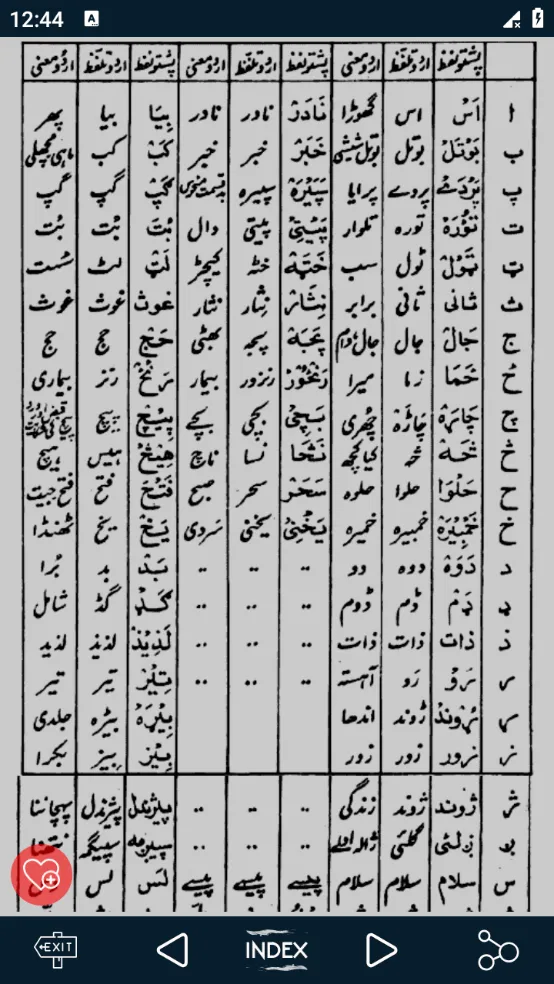 12:44 A
پشتو تلفظ اردو تلفظ اردو معنی پشتو تلفظ اردو تلفظ اردو معنی پشتو تلفظ اردو تلفظ اردو معنی
ا اَسْ اس گھوڑا نَادَرْ نادر نادر بِیَا بیا پھر
ب بَوْتَلْ بوتل بوتل شیشی خَبَرْ خبر خبر کَبْ کب ماہی مچھلی
پ پردے پرایا سپیره گَپْ گپ گپ
ت تُوْرَهْ توره تلوار پیتی دال بُتْ بُت بُت
ټ ټول ٹول سب خټه کیچڑ لَټْ لٹ سُست
ث ثانی ثانی برابر نِثَارْ نِثار نثار غوث غوث غوث
ج جَالْ جال جال دام بھٹی حَجْ حج حج
ځ ځَمَا زما میرا رَنځُوْرْ رنزور بیمار رَنځْ رنز بیماری
چ چَاړَهْ چاڑه چھری بَچِیْ بچی بچے پیچ
څ څَهْ څه کیا کچھ نَڅَا نسا ناچ هِیڅْ ہیس ہیچ
ح حَلْوَا حلوا حلوه سَحَرْ سحر صبح فَتَحْ فتح فتح جیت
خ خَمِیْرَهْ خمیره خمیره یَخْنِیْ یخنی سردی یَخْ یخ ٹھنڈا
د دَوَهْ دوه دو ·· ·· ·· بَدْ بد بُرا
ډ ډم ڈم ڈوم ·· ·· ·· ګډ گڈ شامل
ذ ذات ذات ذات ·· ·· ·· لَذِیْذْ لذیذ لذیذ
ر رَوْ رَو آہسته ·· ·· ·· تِیْرْ تیر تیر
ړ ړُوْندْ ڑوند اندھا بِیْړَهْ بیڑه جلدی
ز زور زور زور بِیْزْ بیز بکرا
ژ ژوند ژوند زندگی ·· ·· ·· پیژندل پیژندل پہچاننا
ږ ږلئی گلئی ·· ·· ··
س سلام سلام سلام پیسے پیسے پیسے لَسْ لس
EXIT INDEX